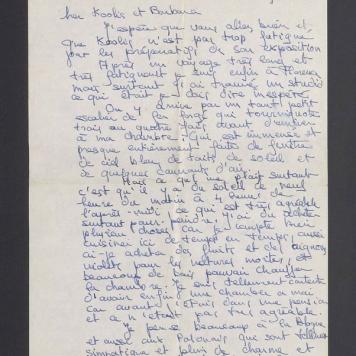 her Koolis et Barbara
J'espère que vous allez bien et
que Koolis n'est pas trop fatigué
par les préparatifs de son exposition
Après un voyage très long et
très fatiguant je suis enfin à Florence
mais surtout j'ai trouvé un studio
ce qui était je dois dire inespéré.
On y arrive par un tout petit
escalier de fer qui tourne
trois ou quatre fois avant d'entrer
à ma chambre. Qui est immense et
presque entièrement faite de fenêtre
de ciel bleu de toits de soleil et
de quelques courants d'air.
Mais ce qui me plait surtout
c'est qu'il y a du soleil de neuf
heure du matin à 4 heures de
l'après-midi, ce qui est très agréable
surtout pour peindre. J'ai du acheter
plusieurs choses car je compte bien
cuisiner ici de temps en temps; aussi
ai-je acheté des fruits et de
violets pour les natures mortes, et
beaucoup de bois pour chauffer
la chambre. Je suis tellement contente
d'avoir enfin une chambre à moi
car avant j'étais dans une pension
et ce n'était pas très agréable.
Je pense beaucoup à la Pologne
et aussi aux Polonais que sont tellement
sympatique et plein de charme et